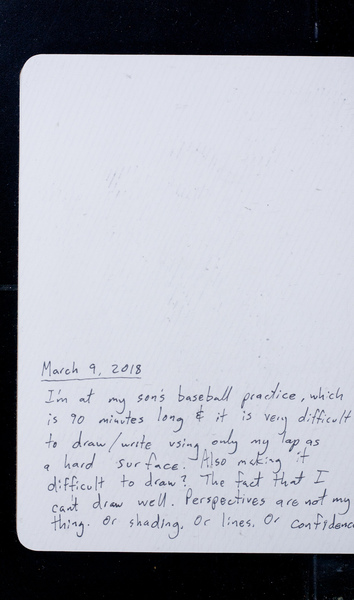 March 9, 2018
I'm at my son's baseball practice, which
is 90 minutes long & it is very difficult
to draw/write using only my lap as
a hard surface. Also making it
difficult to draw? The fact that I
can't draw well. Perspectives are not my
thing. Or shading. Or lines. Or confidence